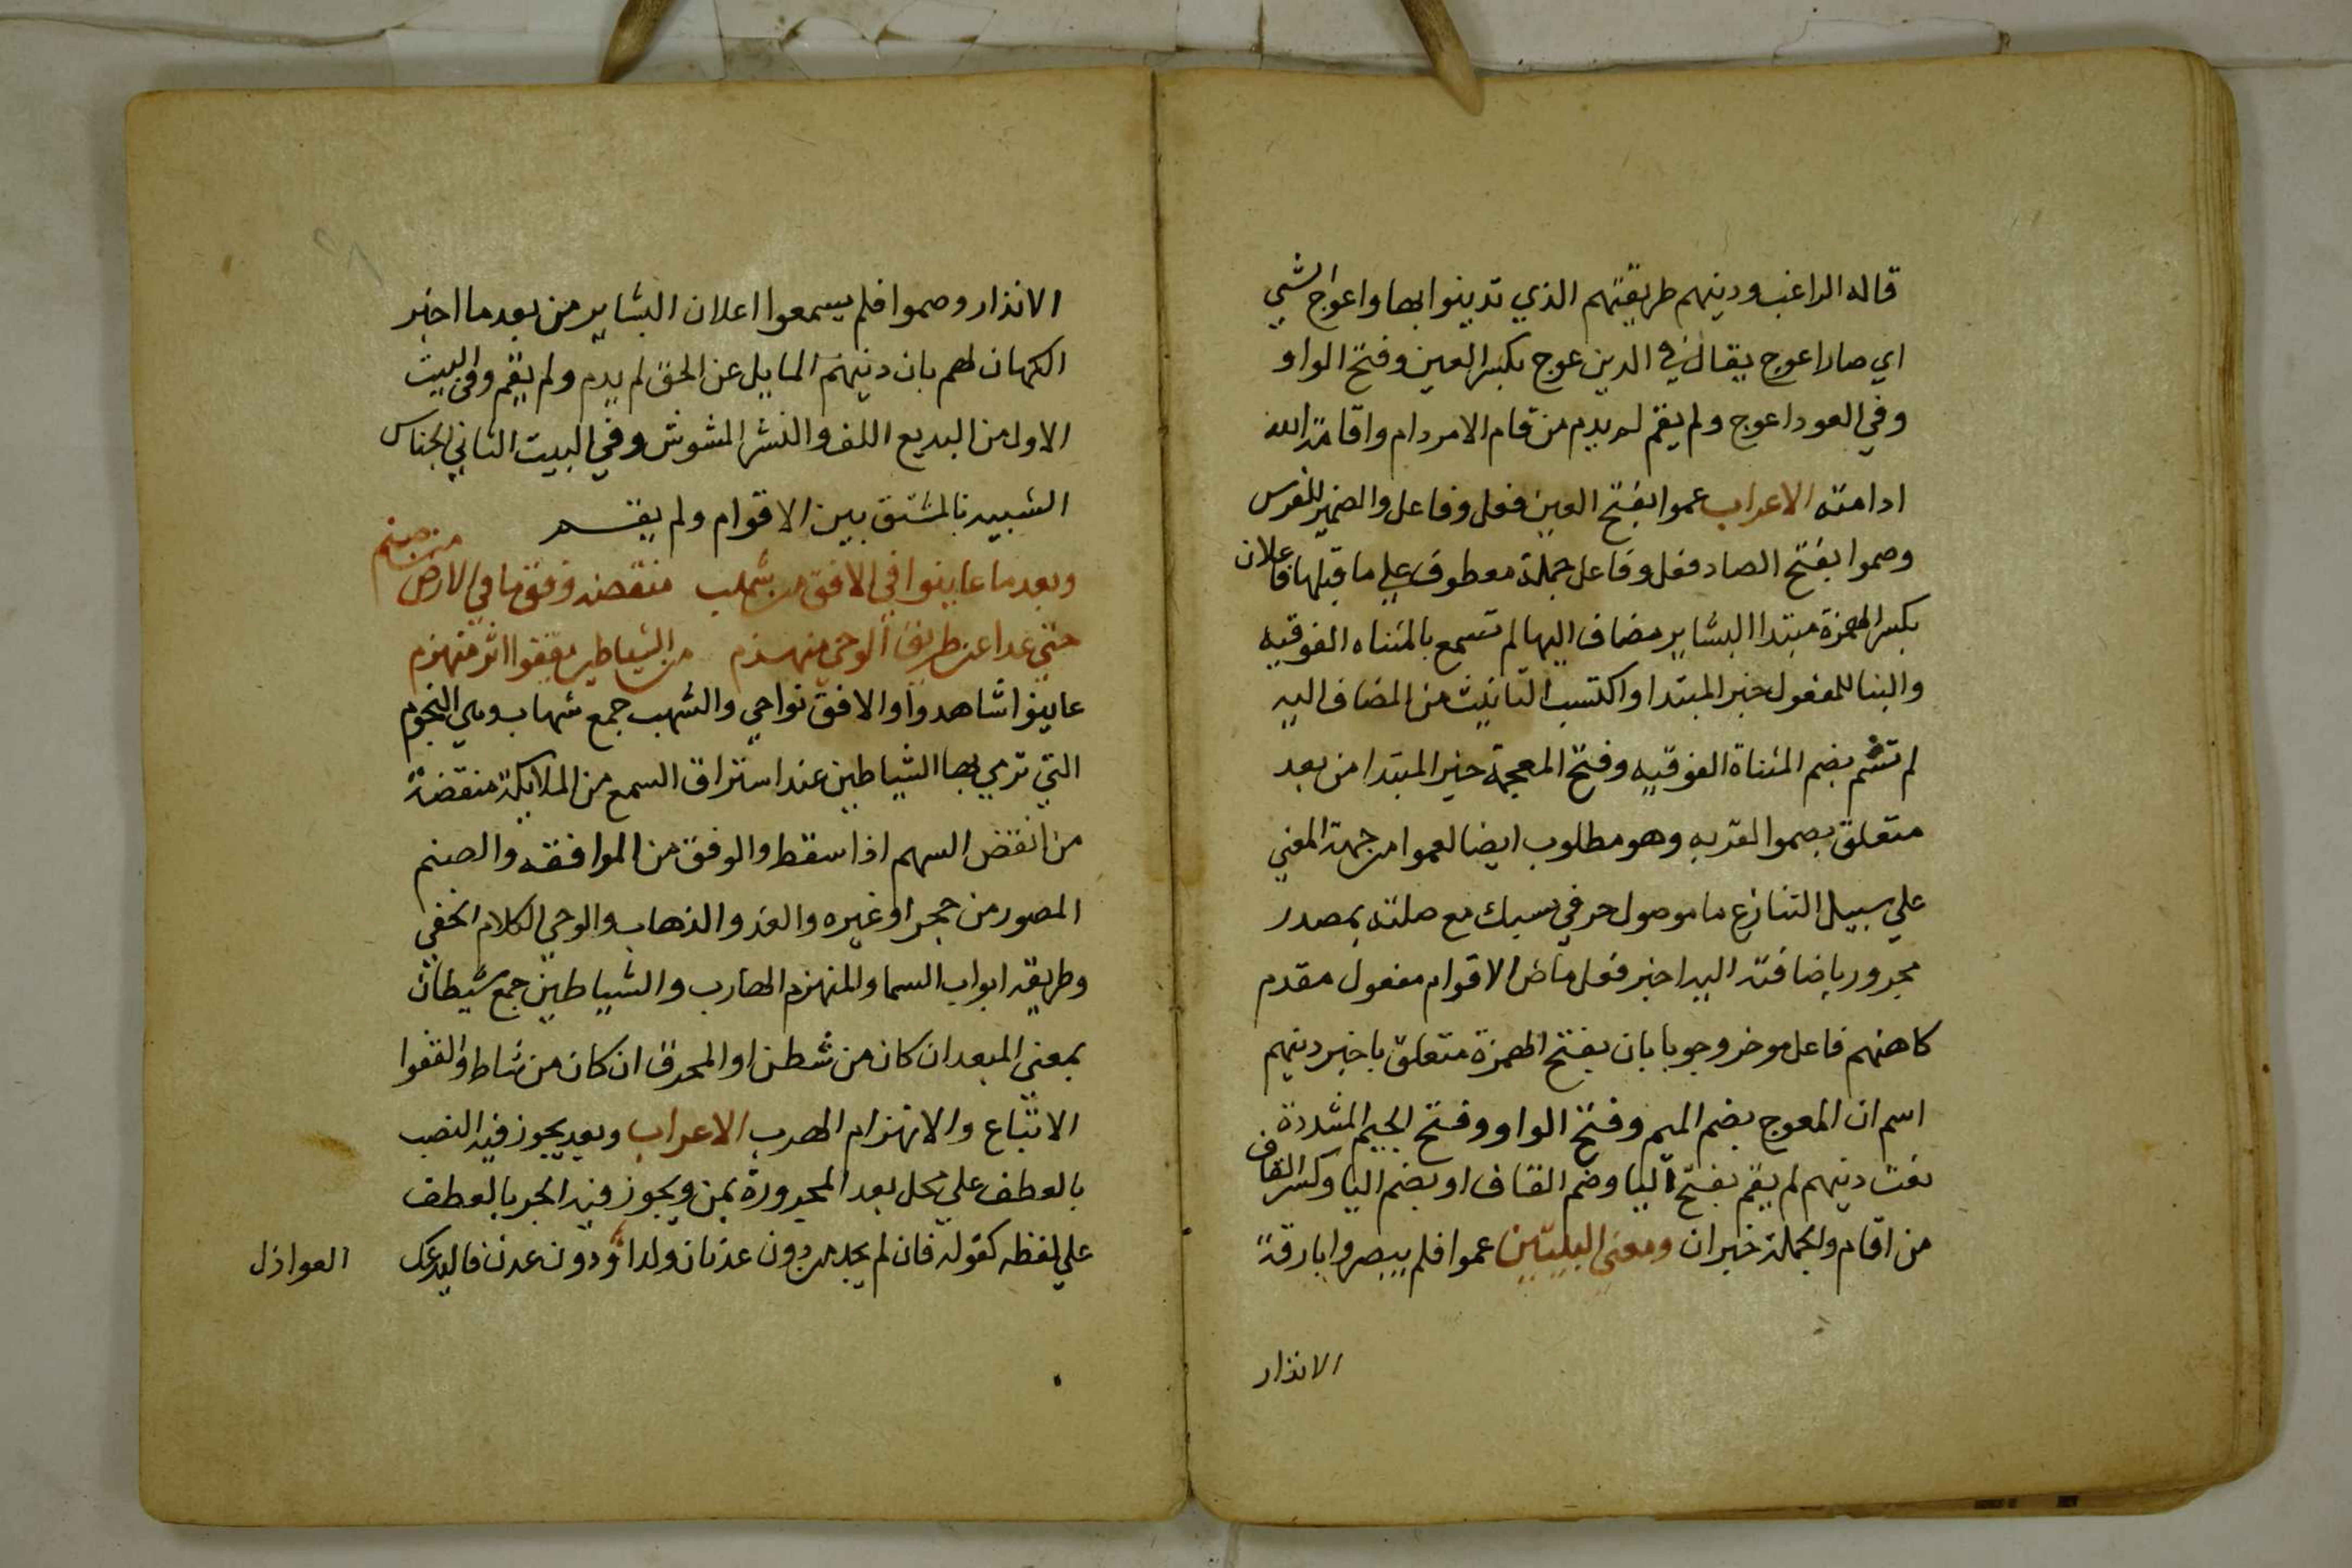 قاله الراغب ودينهم طريقتهم الذي تدينوا بها واعواج الشي
اي صار اعوج يقال في الدين عوج بكسر العين وفتح الواو
وفي العود اعوج ولم يقم لم يدم من قام الامر دام واقامة الله
ادامته الاعراب عموا بفتح العين فعل وفاعل والضمير للفرس
وصموا بفتح الصاد فعل وفاعل جملة معطوف علي ما قبلها فاعلان
بكسر الهمزة مبتدا البشاير مضاف اليها لم تسمع بالمثناه الفوقيه
والبنا للمفعول خبر المبتدا واكتسب التانيث من المضاف اليه
لم تشم بضم المثناة الفوقيه وفتح المعجمة خبر المبتدا من بعد
متعلق بصموا لقربه وهو مطلوب ايضا لعموا من جهة المعني
علي سبيل التنازع ما موصول حرفي يسبك مع صلته بمصدر
مجرور باضافته اليه اخبر فعل ماض الاقوام مفعول مقدم
كاهنهم فاعل موخر وجوبا بان بفتح الهمزة متعلق باخبر دينهم
اسم ان المعوج بضم الميم وفتح الواو وفتح الجيم المشددة
نعت دينهم لم يقم بفتح اليا وضم القاف او بضم اليا وكسر القاف
من اقام والجملة خبر ان ومعني البيتين عموا فلم يبصروا بارقة
الانذار
الانذار وصموا فلم يسمعوا اعلان البشاير من بعد ما اخبر
الكهان لهم بان دينهم المايل عن الحق لم يدم ولم يقم وفي البيت
الاول من البديع اللف والنشر المشوش وفي البيت الثاني الجناس
الشبيه بالمشتق بين الاقوام ولم يقم
وبعد ما عاينوا في الافق من شهب منقضة وفق ما في الارض من صنم
حتي غدا عن طريق الوحي منهزم من الشياطين يقفوا اثر منهزم
عاينوا شاهدوا والافق نواحي والشهب جمع شهاب وهي النجوم
التي ترمي بها الشياطين عند استراق السمع من الملايكة منقضة
من انقض السهم اذا سقط والوفق من الموافقه والصنم
المصور من حجر او غيره والغدو الذهاب والوحي الكلام الخفي
وطريقه ابواب السما والمنهزم الهارب والشياطين جمع شيطان
بمعني المبعد ان كان من شطن او المحرق ان كان من شاط والقفوا
الاتباع والانهزام الهرب الاعراب وبعد يجوز فيه النصب
بالعطف علي محل بعد المجرورة بمن ويجوز فيه الجر بالعطف
علي لفظه كقوله فان لم يجد من دون عدنان ولدا ودون عدن فاليدعك
العواذل